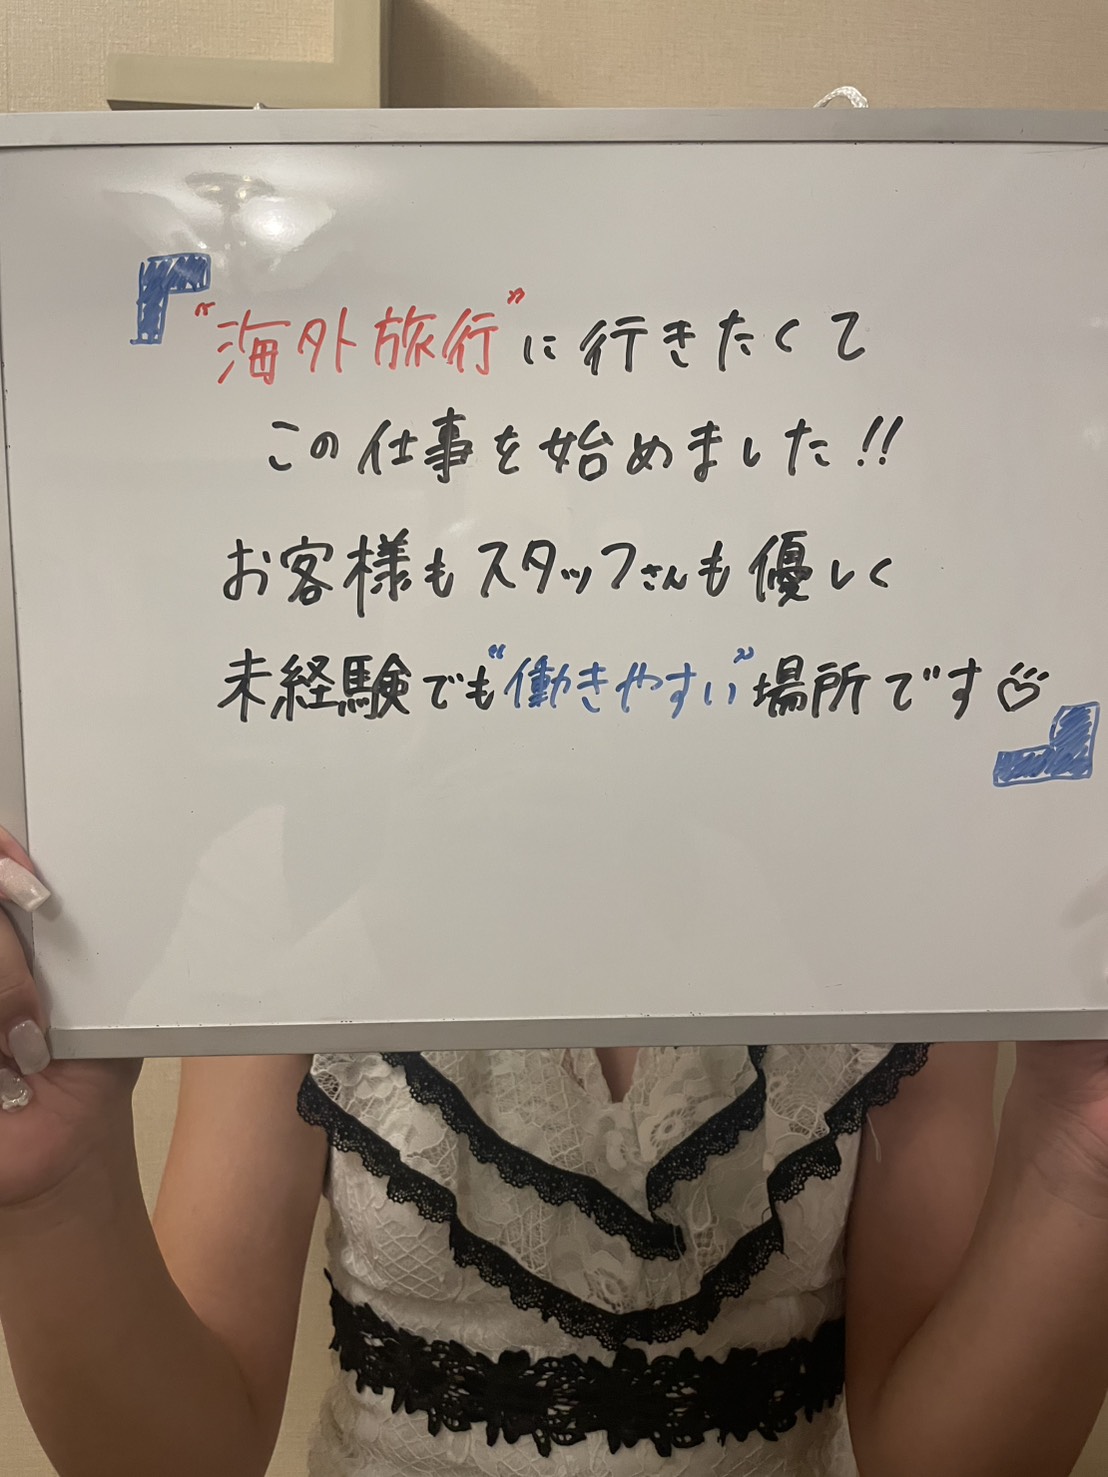 『"海外旅行"に行きたくて
この仕事を始めました!!
お客様もスタッフさんも優しく
未経験でも"働きやすい"場所です♡』